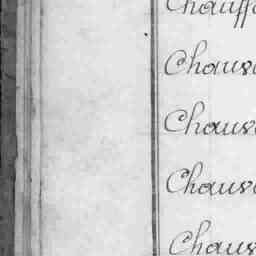 Chauff
Chauv
Chauv
Chauv
Chauv